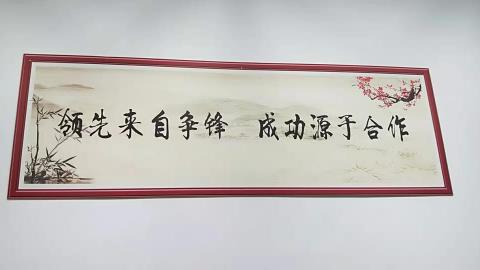 领先来自争锋 成功源于合作